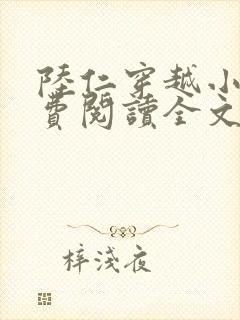 陸仁穿越小
費閱讀全文
梓淺夜